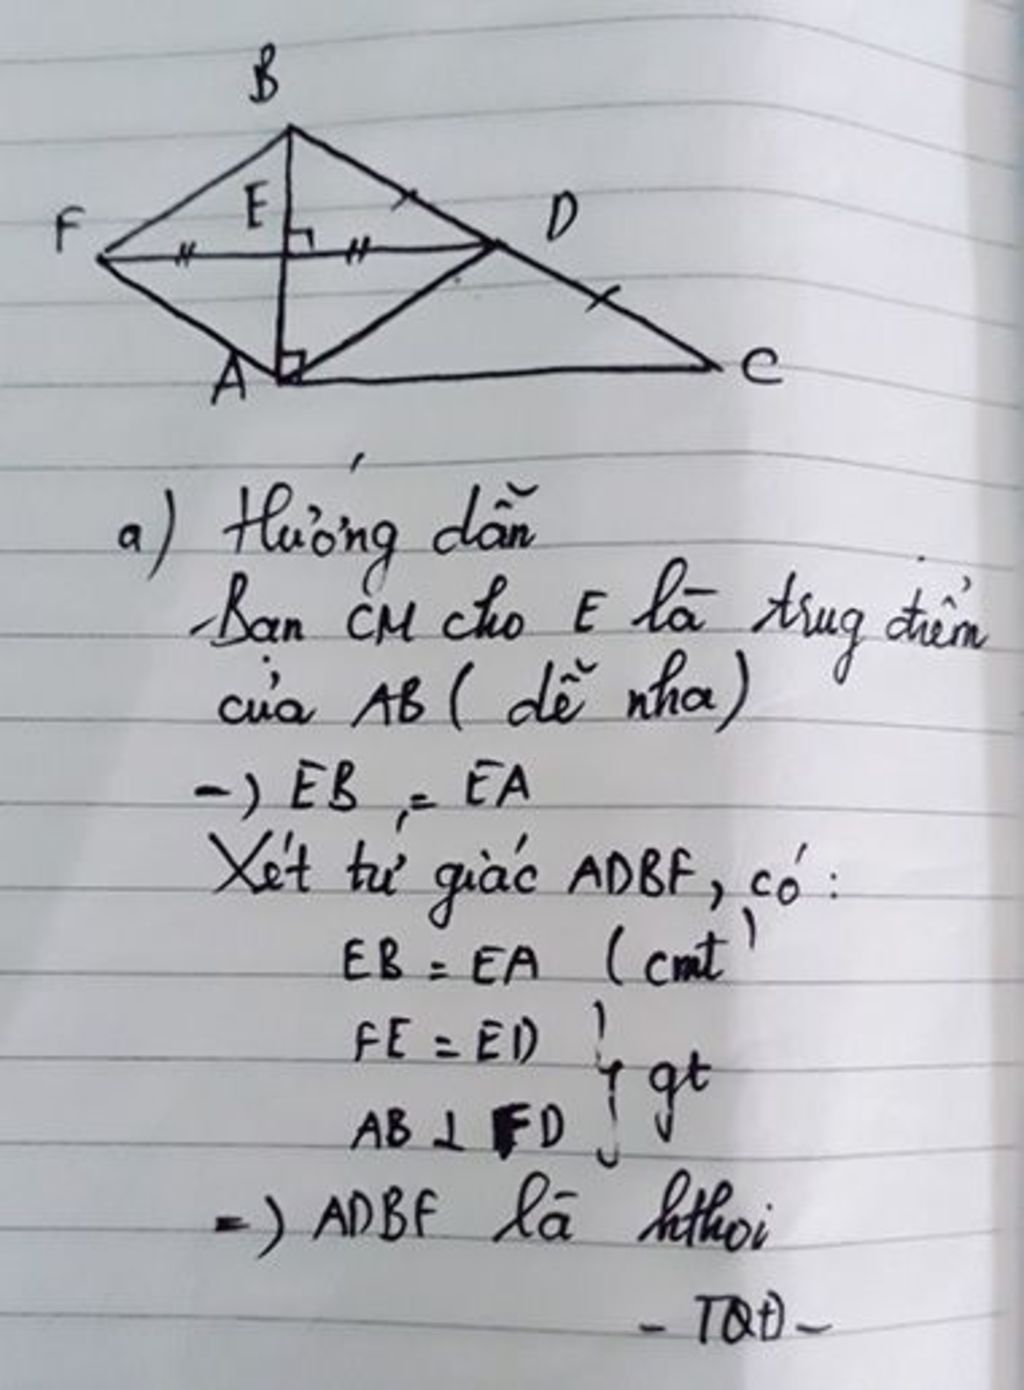 B
F
E
D
A
C
a) Hướng dẫn
Bạn CM cho E là trug điểm
của AB ( dễ nha)
-) EB = EA
Xét tứ giác ADBF, có :
EB = EA (cmt)
FE = ED
AB ⊥ FD } gt
=) ADBF là hthoi
- TQĐ -